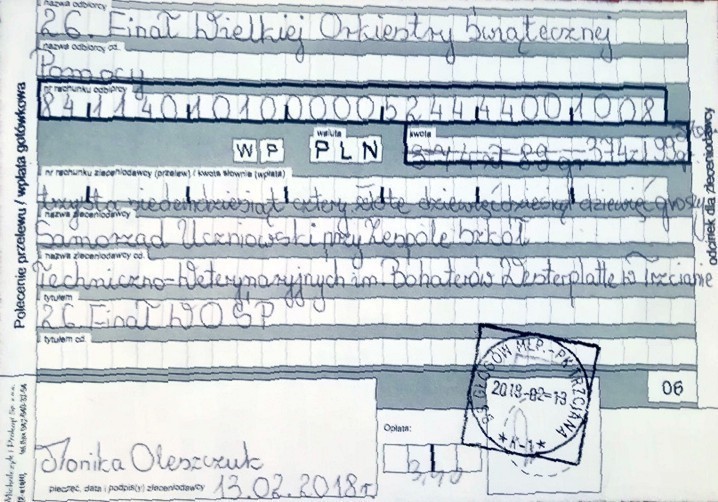 nazwa odbiorcy
26. Finał Wielkiej Orkiestry Świątecznej
nazwa odbiorcy cd.
Pomocy
nr rachunku odbiorcy
84 1140 1010 0000 5244 4400 1008
waluta
kwota
WP PLN 374zł 99gr
nr rachunku zleceniodawcy (przelew) / kwota słownie (wpłata)
trzysta siedemdziesiąt cztery złote dziewięćdziesiąt dziewięć groszy
nazwa zleceniodawcy
Samorząd Uczniowski przy Zespole Szkół
nazwa zleceniodawcy cd.
Techniczno-Weterynaryjnych im. Bohaterów Westerplatte w Trzcianie
tytułem
26. Finał WOŚP
tytułem cd.
06
BS GŁOGÓW MŁP.-PK TRZCIANA
2018-02-13
*K-1*
Opłata:
Monika Oleszczuk
13.02.2018r
pieczęć, data i podpis(y) zleceniodawcy
Polecenie przelewu / wpłata gotówkowa
odcinek dla zleceniodawcy